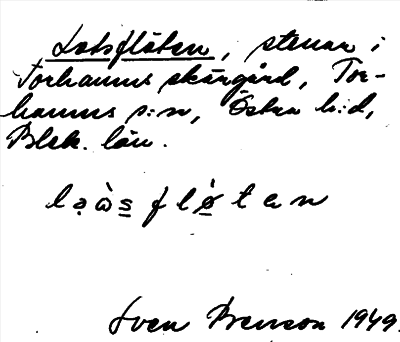 Lotsflöten, stenar i
Torhamns skärgård, Tor-
hamns s:n, Östra h:d,
Blek. län.
l ə ɑ̀ s f l ø̀ t e n
Sven Benson 1949.